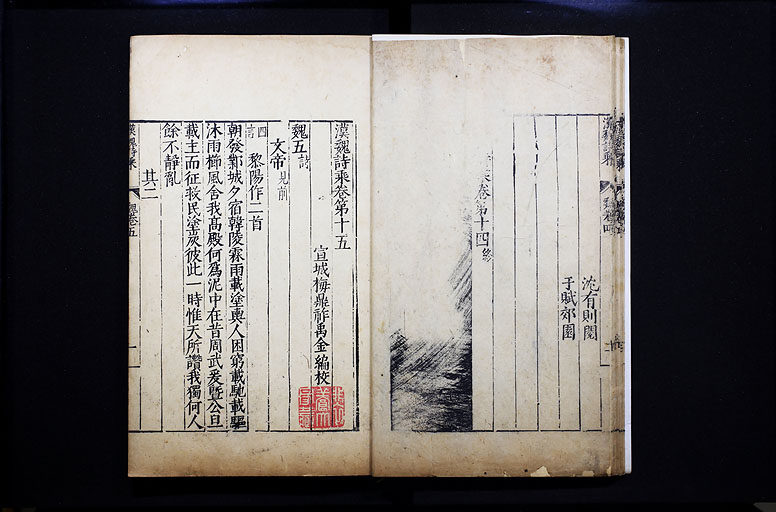 沈有則閱
于賦郊園
乘卷第十四終
漢魏詩乘卷第十五
宣城梅鼎祚禹金編校
魏五詩
文帝見前
四言 黎陽作二首
朝發鄴城夕宿韓陵霖雨載塗輿人困窮載馳載驅
沐雨櫛風舍我高殿何爲泥中在昔周武爰曁公旦
載主而征救民塗炭彼此一時惟天所讚我獨何人
餘不靜亂
其二
漢魏詩乘 魏卷五 一